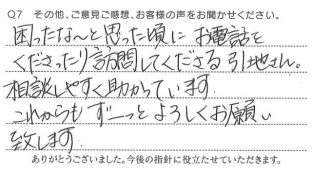 Q7 その他、ご意見ご感想、お客様の声をお聞かせください。
困ったな〜と思った頃に お電話を
くださったり訪問してくださる 引地さん。
相談しやすく助かっています。
これからも ずーっと よろしくお願い
致します。
ありがとうございました。今後の指針に役立たせていただきます。